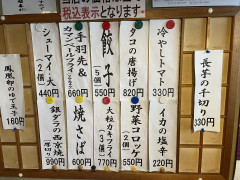 当店の価格は全て
税込表示となります
冷やしトマト
330円
タコの唐揚げ
820円
餃子
(5個)
550円
手羽先&
カマンベールフライ
660円
シューマイ
(2個)
440円
長芋の千切り
330円
鳳凰卵のゆで玉子
160円
イカの塩辛
220円
野菜コロッケ
550円
大粒カキフライ
(3個)
770円
焼さば
600円
銀ダラの西京焼
990円